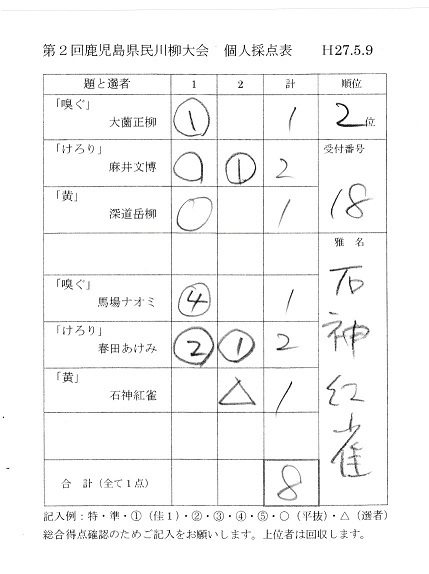 第２回鹿児島県民川柳大会　個人採点表　H27.5.9
題と選者　1　2　計　順位
「嗅ぐ」
大薗正柳　①　1　2位
「けろり」　受付番号
麻井文博　○　①　2
「黄」
深道岳柳　○　1　18
雅名
石神紅雀
「嗅ぐ」
馬場ナオミ　④　1
「けろり」
春田あけみ　②　①　2
「黄」
石神紅雀　△　1
合計（全て1点）　8
記入例：特・準・①（佳1）・②・③・④・⑤・○（平抜）・△（選者）
総合得点確認のためご記入をお願いします。上位者は回収します。